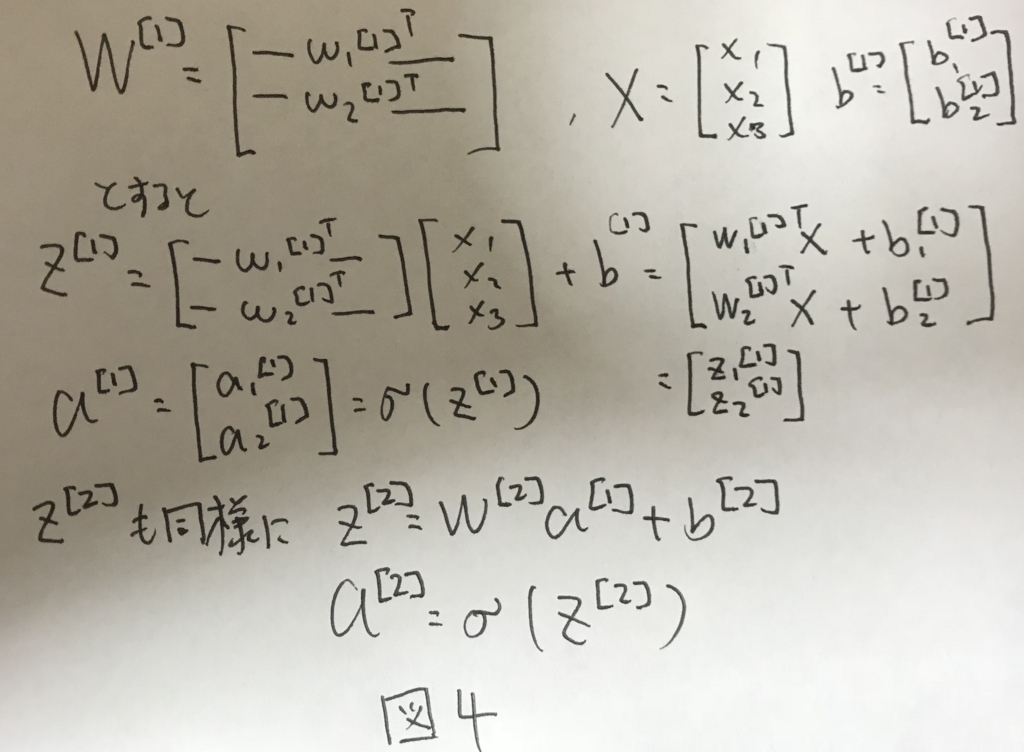 W^{[1]} = [ — w_1^{[1]T} — ; — w_2^{[1]T} — ] , X = [ x_1 ; x_2 ; x_3 ] b^{[1]} = [ b_1^{[1]} ; b_2^{[1]} ]
とすると
z^{[1]} = [ — w_1^{[1]T} — ; — w_2^{[1]T} — ] [ x_1 ; x_2 ; x_3 ] + b^{[1]} = [ w_1^{[1]T} X + b_1^{[1]} ; w_2^{[1]T} X + b_2^{[1]} ]
= [ z_1^{[1]} ; z_2^{[1]} ]
a^{[1]} = [ a_1^{[1]} ; a_2^{[1]} ] = σ(z^{[1]})
z^{[2]}も同様に z^{[2]} = W^{[2]} a^{[1]} + b^{[2]}
a^{[2]} = σ(z^{[2]})
図4